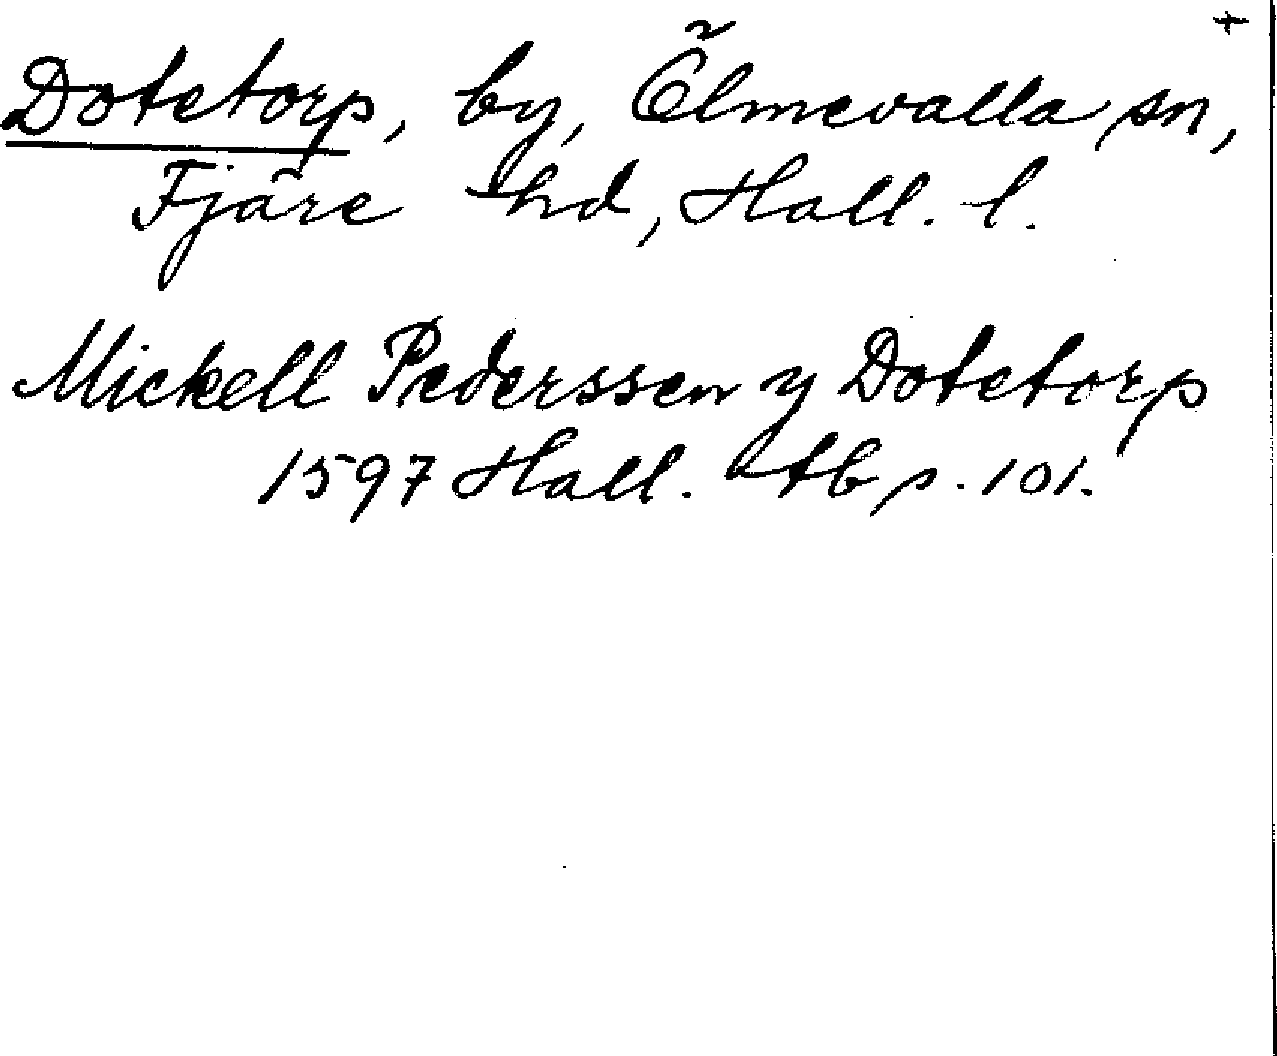 +
Dotetorp, by, Ölmevalla sn,
Fjäre hd, Hall. l.
Mickell Pederssen y Dotetorp
1597 Hall. tb s. 101.